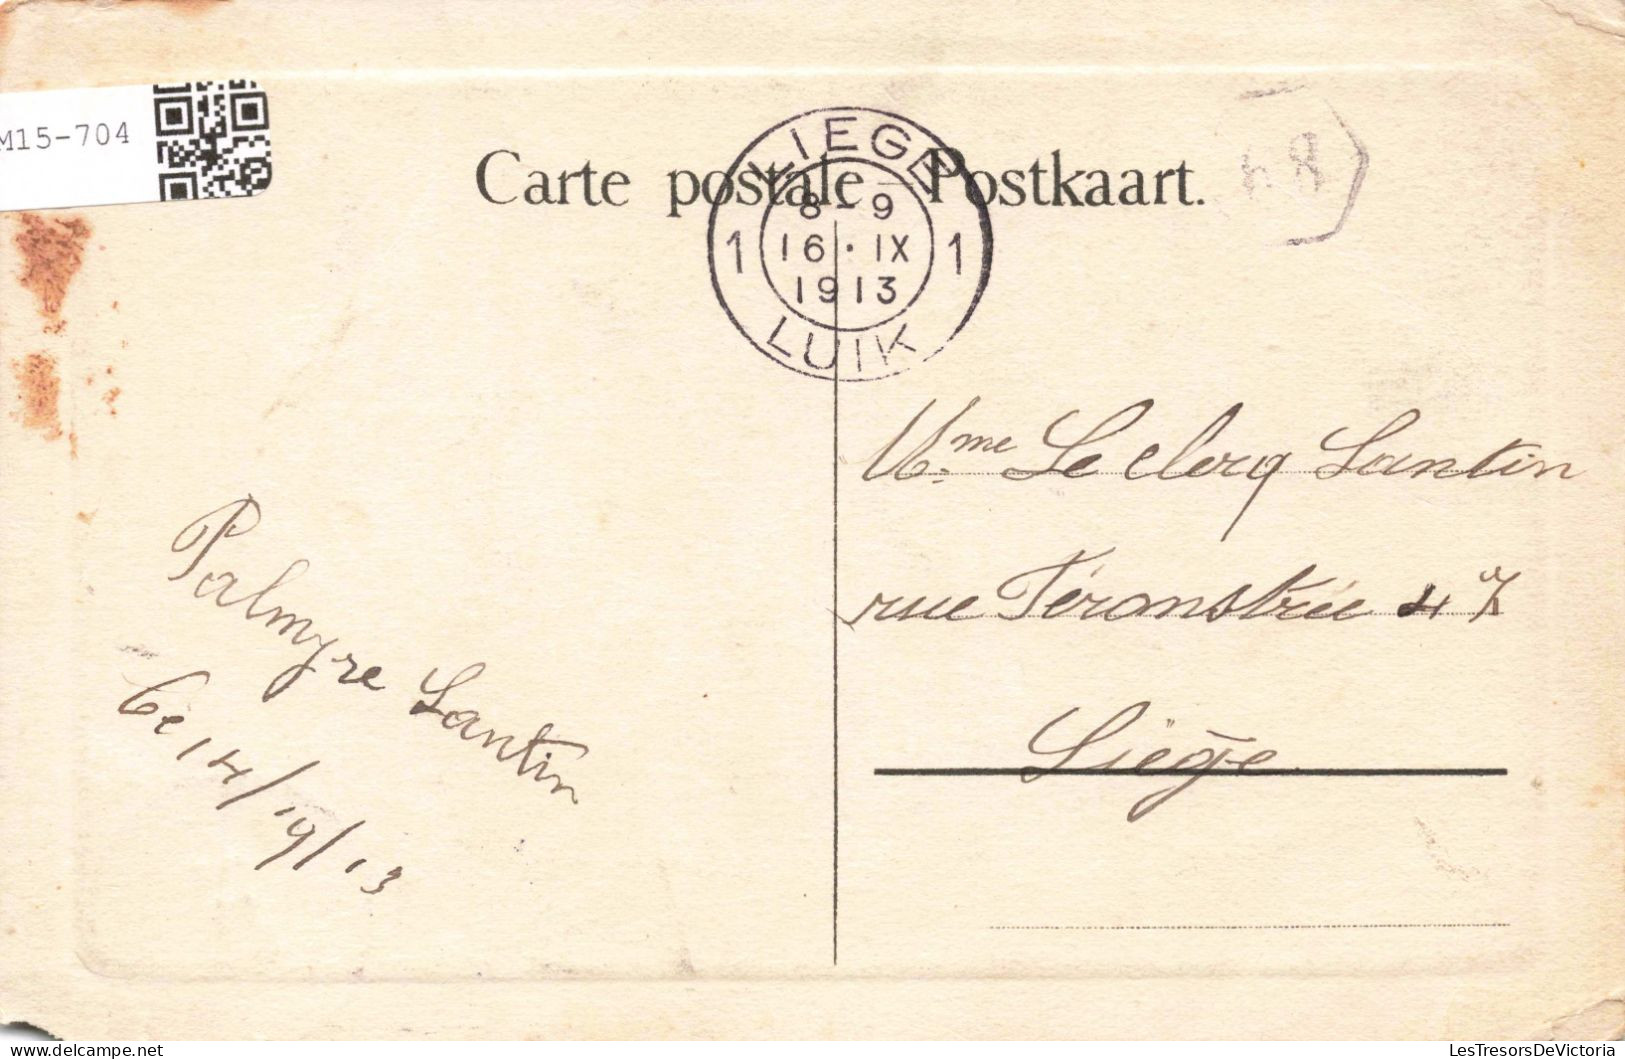 M15-704
Carte postale Postkaart.
LIEGE
8-9
1 16·IX 1
1913
LUIK
Mme Le Clercq Lantin
rue Féronstrée 47
Liège
Palmyre Lantin
le 14/9/13
LesTresorsDeVictoria